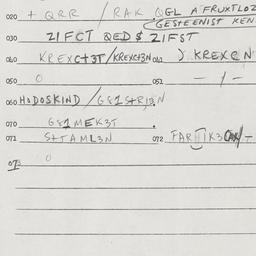 020 + QRR / RAK QGL A FRUXTLOZ
GESTEENIST KEN
030 21FCT QED $ 21FST
040 KREXC+3T/KREXC+3N 041 ) KREXC N
050 0 051 - / -
060 HODOSKIND / G81STR13N
070 G81MEK3T
071 S+TAML3N 072
073 0